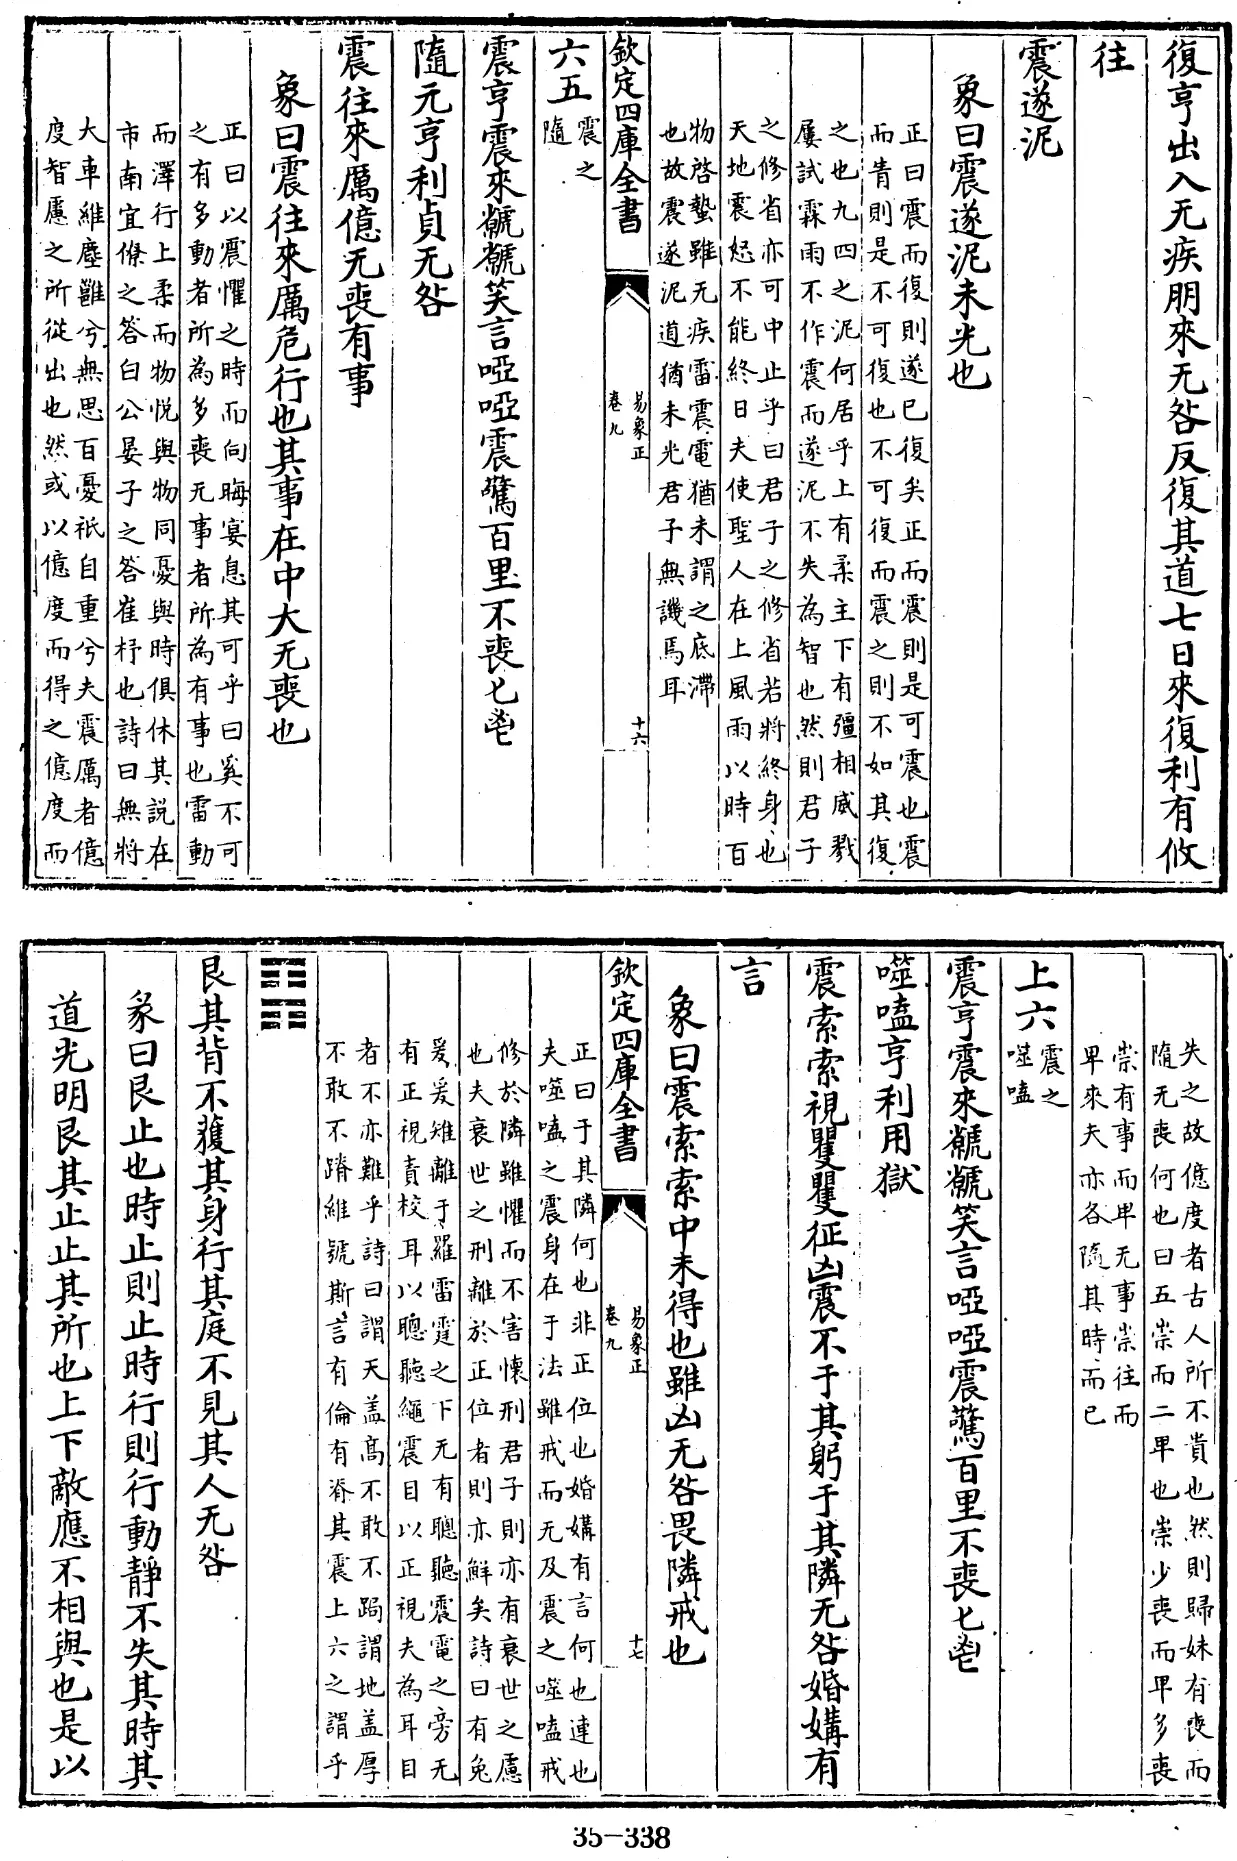 復亨出入无疾朋來无咎反復其道七日來復利有攸
往
震遂泥
象曰震遂泥未光也
正曰震而復則遂已復矣正而震則是可震也震
而眚則是不可復也不可復而震之則不如其復
之也九四之泥何居乎上有柔主下有彊相威戮
屢試霖雨不作震而遂泥不失為智也然則君子
之修省亦可中止乎曰君子之修省若將終身也
天地震怒不能終日夫使聖人在上風雨以時百
物啓蟄雖无疾雷震電猶未謂之底滯
也故震遂泥道猶未光君子無譏焉耳
欽定四庫全書
易象正
卷九
十六
六五
震之
隨
震亨震來虩虩笑言啞啞震驚百里不喪匕鬯
隨元亨利貞无咎
震往來厲億无喪有事
象曰震往來厲危行也其事在中大无喪也
正曰以震懼之時而向晦宴息其可乎曰奚不可
之有多動者所為多喪无事者所為有事也雷動
而澤行上柔而物悅與物同憂與時俱休其說在
市南宜僚之答白公晏子之答崔杼也詩曰無將
大車維塵雝兮無思百憂祇自重兮夫震厲者億
度智慮之所從出也然或以億度而得之億度而
失之故億度者古人所不貴也然則歸妹有喪而
隨无喪何也曰五崇而二卑也崇少喪而卑多喪
崇有事而卑无事崇往而
卑來夫亦各隨其時而已
上六
震之
噬嗑
震亨震來虩虩笑言啞啞震驚百里不喪匕鬯
噬嗑亨利用獄
震索索視矍矍征凶震不于其躬于其隣无咎婚媾有
言
象曰震索索中未得也雖凶无咎畏隣戒也
欽定四庫全書
易象正
卷九
十七
正曰于其隣何也非正位也婚媾有言何也連也
夫噬嗑之震身在于法雖戒而无及震之噬嗑戒
修於隣雖懼而不害懷刑君子則亦有衰世之慮
也夫衰世之刑離於正位者則亦鮮矣詩曰有兔
爰爰雉離于羅雷霆之下无有聰聽震電之旁无
有正視責校耳以聰聽繩震目以正視夫為耳目
者不亦難乎詩曰謂天蓋高不敢不跼謂地蓋厚
不敢不蹐維號斯言有倫有脊其震上六之謂乎
䷳
艮其背不獲其身行其庭不見其人无咎
彖曰艮止也時止則止時行則行動靜不失其時其
道光明艮其止止其所也上下敵應不相與也是以
35-338